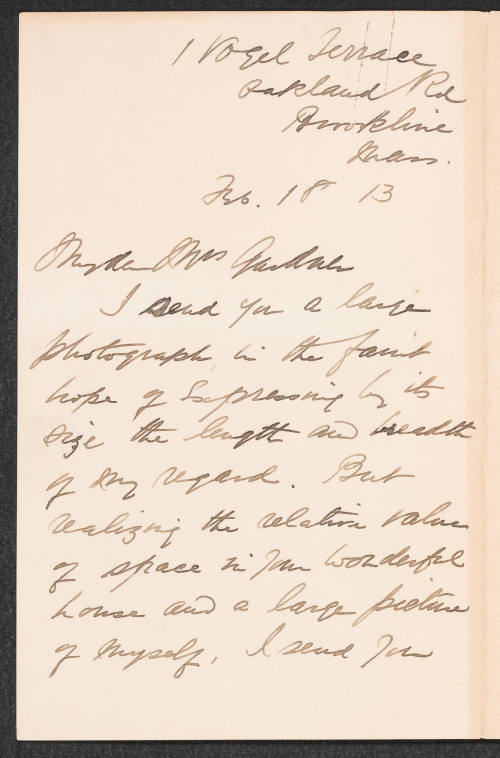 1 Vogel Terrace
Oakland Rd
Brookline
Mass.
Feb. 18 13
My dear Mrs Gardner
I send you a large
photograph, in the faint
hope of Expressing by its
size the length and breadth
of my regard. But
realizing the relative value
of space in your wonderful
house and a large picture
of myself, I send you